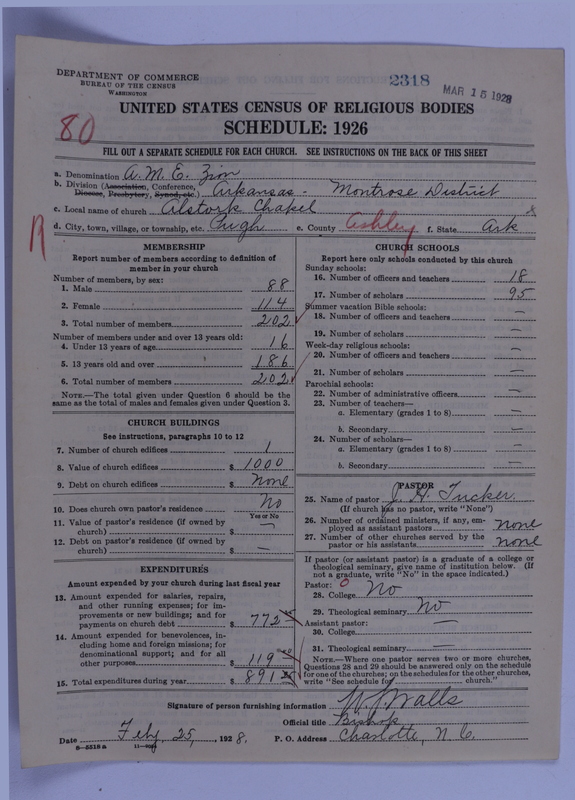 DEPARTMENT OF COMMERCE
BUREAU OF THE CENSUS
WASHINGTON
2318
MAR 15 1928
UNITED STATES CENSUS OF RELIGIOUS BODIES
SCHEDULE: 1926
80
FILL OUT A SEPARATE SCHEDULE FOR EACH CHURCH. SEE INSTRUCTIONS ON THE BACK OF THIS SHEET
a. Denomination A. M. E. Zion
b. Division (Association, Conference, Diocese, Presbytery, Synod, etc.) Arkansas - Montrose District
c. Local name of church Alstork Chapel
d. City, town, village, or township, etc. Pugh e. County Ashley f. State Ark
R
MEMBERSHIP
Report number of members according to definition of
member in your church
Number of members, by sex:
1. Male 88
2. Female 114
3. Total number of members 202
Number of members under and over 13 years old:
4. Under 13 years of age 16
5. 13 years old and over 186
6. Total number of members 202
NOTE.—The total given under Question 6 should be the
same as the total of males and females given under Question 3.
CHURCH BUILDINGS
See instructions, paragraphs 10 to 12
7. Number of church edifices 1
8. Value of church edifices $ 1000
9. Debt on church edifices $ none
10. Does church own pastor's residence No
Yes or No
11. Value of pastor's residence (if owned by
church) $ —
12. Debt on pastor's residence (if owned by
church) $ —
EXPENDITURES
Amount expended by your church during last fiscal year
13. Amount expended for salaries, repairs,
and other running expenses; for im-
provements or new buildings; and for
payments on church debt $ 772
14. Amount expended for benevolences, in-
cluding home and foreign missions; for
denominational support; and for all
other purposes $ 119
15. Total expenditures during year $ 891
CHURCH SCHOOLS
Report here only schools conducted by this church
Sunday schools:
16. Number of officers and teachers 18
17. Number of scholars 95
Summer vacation Bible schools:
18. Number of officers and teachers —
19. Number of scholars —
Week-day religious schools:
20. Number of officers and teachers —
21. Number of scholars —
Parochial schools:
22. Number of administrative officers —
23. Number of teachers—
a. Elementary (grades 1 to 8) —
b. Secondary —
24. Number of scholars—
a. Elementary (grades 1 to 8) —
b. Secondary —
PASTOR
25. Name of pastor J. H. Tucker
(If church has no pastor, write "None")
26. Number of ordained ministers, if any, em-
ployed as assistant pastors none
27. Number of other churches served by the
pastor or his assistants none
If pastor (or assistant pastor) is a graduate of a college or
theological seminary, give name of institution below. (If
not a graduate, write "No" in the space indicated.)
Pastor: 0
28. College No
29. Theological seminary No
Assistant pastor:
30. College —
31. Theological seminary —
NOTE.—Where one pastor serves two or more churches,
Questions 28 and 29 should be answered only on the schedule
for one of the churches; on the schedules for the other churches,
write "See schedule for church."
Signature of person furnishing information W. J. Walls
Official title Bishop
Date Feby 25, 1928. P. O. Address Charlotte, N. C.
8—5518 a